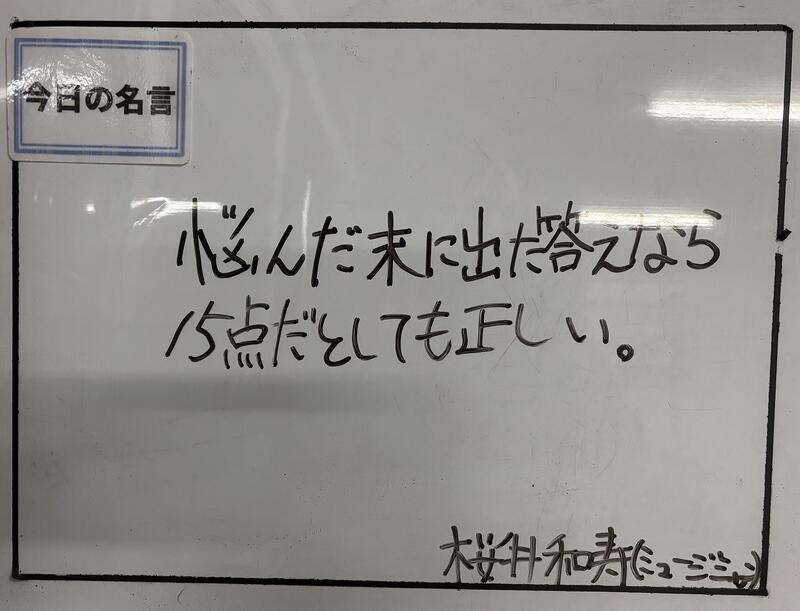 今日の名言
悩んだ末に出た答えなら
15点だとしても正しい。
桜井和寿(ミュージシャン)